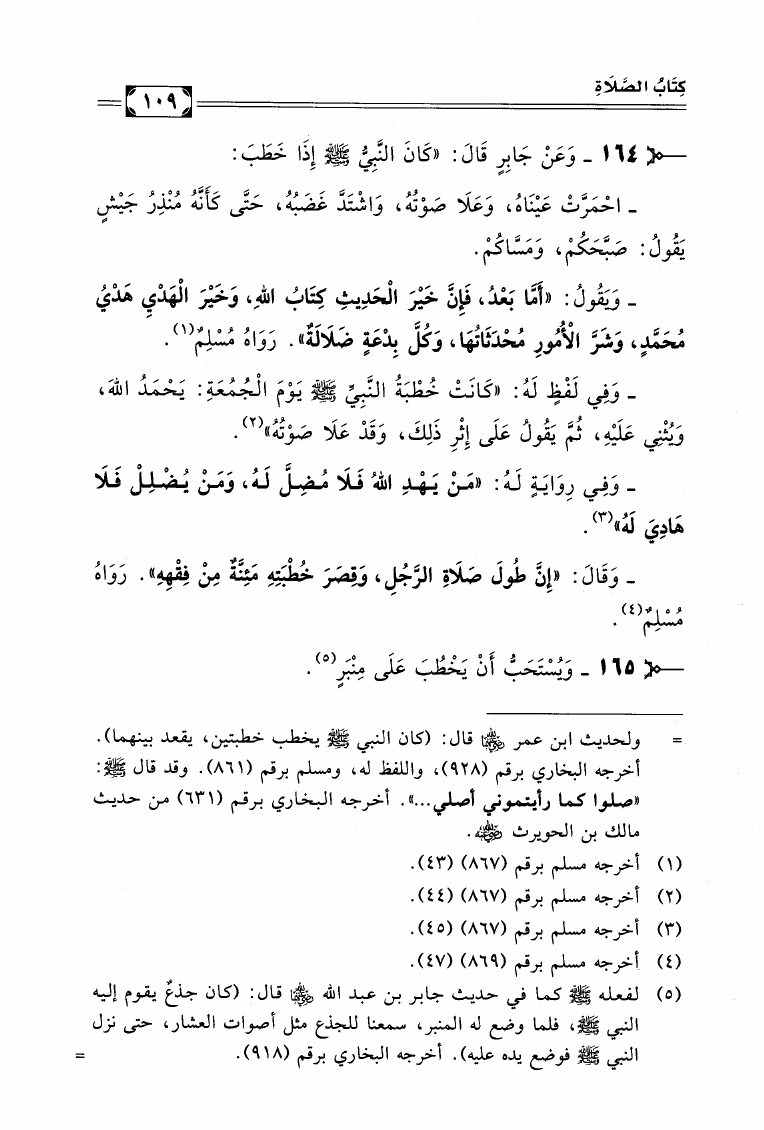 كِتَابُ الصَّلَاةِ
١٠٩
١٦٤ ـ وَعَنْ جَابِرٍ قَالَ: «كَانَ النَّبِيُّ ﷺ إِذَا خَطَبَ:
ـ احْمَرَّتْ عَيْنَاهُ، وَعَلَا صَوْتُهُ، وَاشْتَدَّ غَضَبُهُ، حَتَّى كَأَنَّهُ مُنْذِرُ جَيْشٍ
يَقُولُ: صَبَّحَكُمْ، وَمَسَّاكُمْ.
ـ وَيَقُولُ: «أَمَّا بَعْدُ، فَإِنَّ خَيْرَ الْحَدِيثِ كِتَابُ اللهِ، وَخَيْرَ الْهَدْيِ هَدْيُ
مُحَمَّدٍ، وَشَرَّ الْأُمُورِ مُحْدَثَاتُهَا، وَكُلَّ بِدْعَةٍ ضَلَالَةٌ». رَوَاهُ مُسْلِمٌ(١).
ـ وَفِي لَفْظٍ لَهُ: «كَانَتْ خُطْبَةُ النَّبِيِّ ﷺ يَوْمَ الْجُمُعَةِ: يَحْمَدُ اللهَ،
وَيُثْنِي عَلَيْهِ، ثُمَّ يَقُولُ عَلَى إِثْرِ ذَلِكَ، وَقَدْ عَلَا صَوْتُهُ»(٢).
ـ وَفِي رِوَايَةٍ لَهُ: «مَنْ يَهْدِ اللهُ فَلَا مُضِلَّ لَهُ، وَمَنْ يُضْلِلْ فَلَا
هَادِيَ لَهُ»(٣).
ـ وَقَالَ: «إِنَّ طُولَ صَلَاةِ الرَّجُلِ، وَقِصَرَ خُطْبَتِهِ مَئِنَّةٌ مِنْ فِقْهِهِ». رَوَاهُ
مُسْلِمٌ(٤).
١٦٥ ـ وَيُسْتَحَبُّ أَنْ يَخْطُبَ عَلَى مِنْبَرٍ(٥).
= ولحديث ابن عمر رضي الله عنهما قال: (كان النبي ﷺ يخطب خطبتين، يقعد بينهما).
أخرجه البخاري برقم (٩٢٨)، واللفظ له، ومسلم برقم (٨٦١). وقد قال ﷺ:
«صلوا كما رأيتموني أصلي...». أخرجه البخاري برقم (٦٣١) من حديث
مالك بن الحويرث رضي الله عنه.
(١) أخرجه مسلم برقم (٨٦٧) (٤٣).
(٢) أخرجه مسلم برقم (٨٦٧) (٤٤).
(٣) أخرجه مسلم برقم (٨٦٧) (٤٥).
(٤) أخرجه مسلم برقم (٨٦٩) (٤٧).
(٥) لفعله ﷺ كما في حديث جابر بن عبد الله رضي الله عنهما قال: (كان جذعٌ يقوم إليه
النبي ﷺ، فلما وضع له المنبر، سمعنا للجذع مثل أصوات العشار، حتى نزل
النبي ﷺ فوضع يده عليه). أخرجه البخاري برقم (٩١٨). =